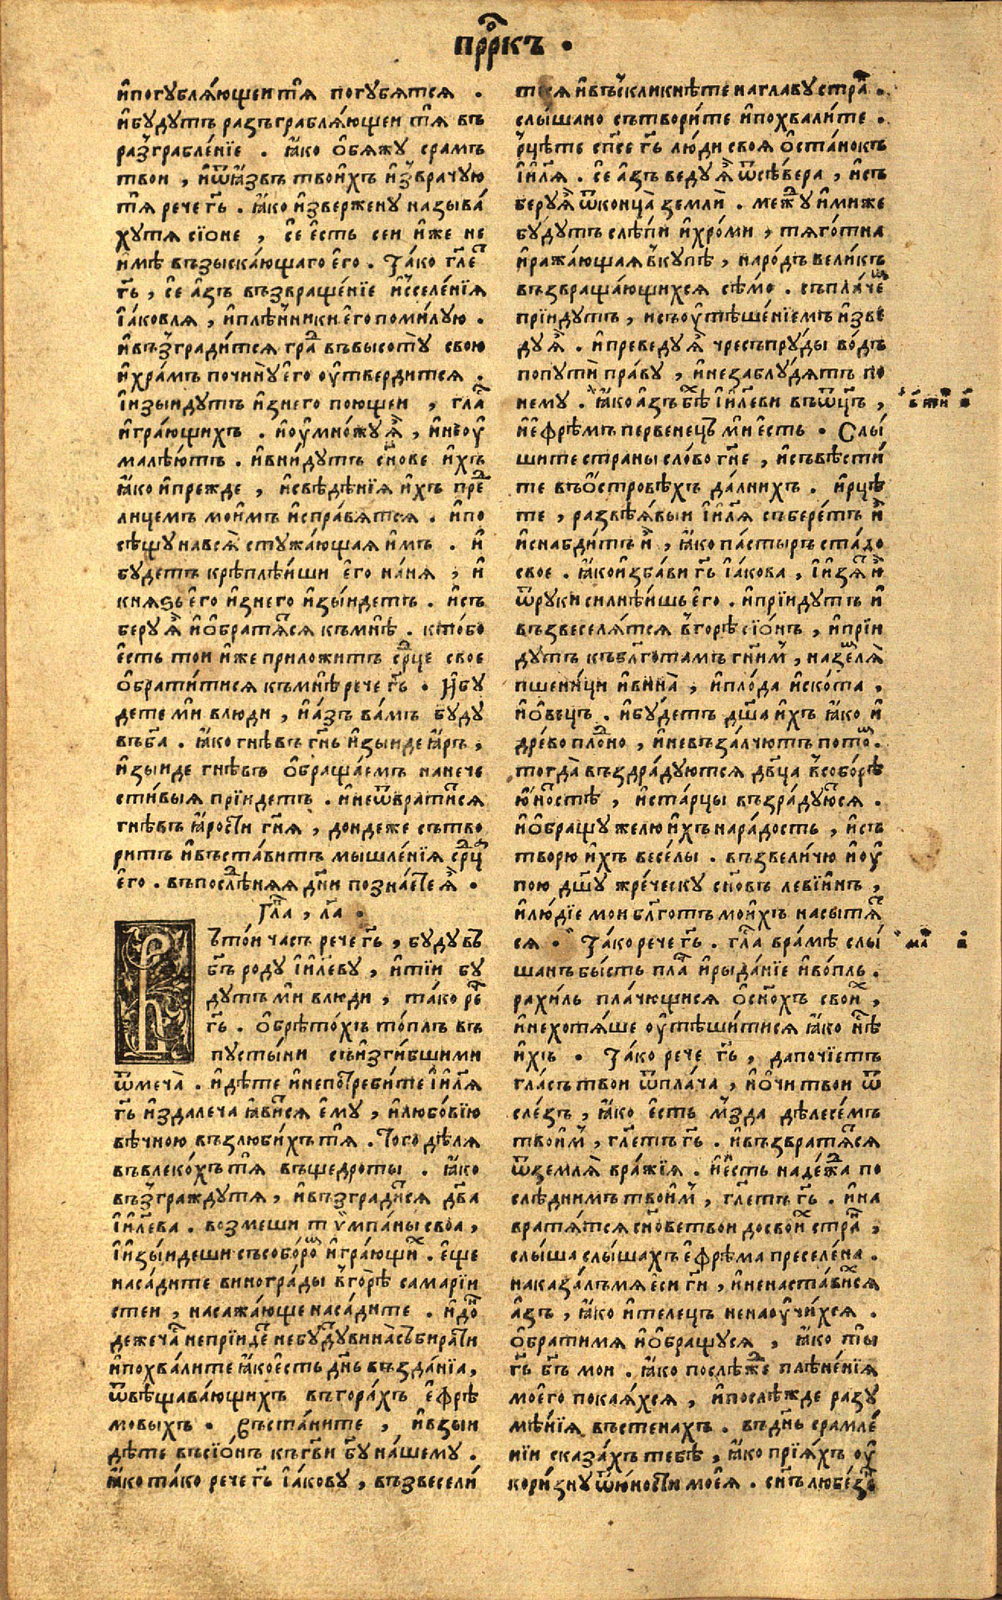 пррⷪ҇къ ·
и҆погꙋблѧ́ющеи тѧ̀ погꙋбѧтсѧ .
и҆бꙋдꙋтъ разъграблѧ́ющеи тѧ̀ въ
разграбле́нїе . ꙗ҆ко о҆бѧжꙋ срамъ
твои , и҆ѿꙗ҆звъ твои́хъ и҆зврачꙋю
тѧ̀ рече гь҃ . ꙗ҆ко и҆звержену назыв́а
хутѧ сїѡне , се е҆сть сеи и҆же не
и҆мѣ възыска́ющаго е҆го . Та́ко гл҃е
гь҃ , се а҆зъ възвраще́нїе и҆сселе́нїѧ
і҆а́ковлѧ , и҆плѣ́нники е҆го поми́лꙋю .
и҆възгради́тсѧ граⷣ въвысотꙋ свою
и҆хра́мъ почи́нꙋ е҆го оу҆твердитсѧ .
і҆изы́идꙋтъ и҆знего поющеи , глаⷭ҇
и҆гра́ющихъ . и҆оу҆мно́жꙋ ѧⷯ , и҆неоу҆
малѣ́ютъ . и҆вни́дꙋтъ сн҃ове и҆хъ
ꙗ҆ко и҆прежде , и҆свѣдѣ́нїѧ и҆хъ преⷣ
лицемъ мои́мъ и҆спра́вѧтсѧ . и҆по
сѣщꙋ навсѧ̀ стꙋжа́ющаѧ и҆мъ . и҆
бꙋдетъ крѣплѣ́иши е҆го на́нѧ , и҆
кнѧзь е҆го и҆знего и҆зы́идетъ . и҆съ
берꙋ ѧⷯ и҆о҆братѧ́сѧ къмнѣ . кто́бо
е҆сть тои и҆же приложитъ срⷣце свое
о҆брати́тисѧ къмнѣ рече гь҃ . И҆бꙋ
дете мѝ влюди , и҆а́зъ ва́мъ бꙋдꙋ
въба҃ . ꙗ҆ко гнѣвъ гн҃ь и҆зыиде ꙗ҆ръ ,
и҆зыиде гнѣвъ о҆браща́емъ нанече
сти́выѧ прїидетъ . и҆неѿврати́тсѧ
гнѣвъ ꙗ҆рости гн҃ѧ , дондеже сътво
ритъ и҆въста́витъ мышле́нїѧ срⷣца
е҆го . въпослѣⷣнѧѧ дн҃и позна́ете ѧⷯ .
Глаⷡ , ла҃ .
Вътои часъ рече гь҃ , бꙋдꙋ въ
бг҃ъ родꙋ і҆и҃левꙋ , и҆тїи бꙋ
дꙋтъ мѝ влюди , та́ко реⷱ
гь҃ . о҆брѣто́хъ то́плъ въ
пꙋсты́ни съи҆зги́бшими
ѿмеча̀ . и҆дѣ́те и҆непотреби́те і҆и҃лѧ
гь҃ и҆здалеча ꙗ҆ви́сѧ е҆мꙋ , и҆любо́вїю
вѣ́чною възлюби́хъ тѧ̀ . Того дѣ́лѧ
въвлеко́хъ тѧ̀ въщедроты . ꙗ҆ко
възгражд́ꙋтѧ , и҆възгради́сѧ дв҃а
і҆и҃лева . возмеши тѷмпа́ны своа ,
і҆изы́идеши съсоборо́ⷨ и҆гра́ющиⷯ . е҆ще
наса́дите виногра́ды вгорѣ̀ самарїи
стеи , насажа́юще наса́дите . и҆до́ⷩ
дежечаⷭ҇ неприідеⷮ небꙋдꙋвина̀събирати
и҆похвали́те ꙗ҆коестъ дн҃ь възда́нїа,
ѿвѣщава́ющихъ въгора́хъ е҆фрѣ́
мовыхъ . Въста́ните , и҆взыи
дѣ́те въсїо́нъ къгв҃и бг҃ꙋ на́шемꙋ .
ꙗ҆ко та́ко рече гь҃ і҆а́ковꙋ , възвесели́
тсѧ и҆въсклики́ѣте наглавꙋ страⷩ .
слы́шано сътвори́те и҆похвали́те .
рцѣ́те сп҃се гь҃ лю́ди своѧ о҆ста́нокъ
і҆и҃лѧ . се а҆зъ ведꙋ ѧⷯ ѿсѣ́вера , и҆съ
берꙋ ѧⷯ ѿконца̀ землѝ . межⷣꙋ и҆миже
бꙋдꙋтъ слѣ́пи и҆хро́ми , тѧго́тна
и҆ражда́ющаѧ вкꙋпѣ , наро́дъ вели́къ
възвраща́ющихсѧ сѣ́мо . съпла́чеⷨ
прїидꙋтъ , и҆съоу҆тѣше́нїемъ и҆зве
дꙋ ѧⷯ . и҆преведꙋ ѧⷯ чресъпрꙋ́ды во́дъ
попꙋтѝ пра́вꙋ , и҆незаблꙋ́дѧтъ по
немꙋ . ꙗ҆ко а҆зъ бѣ́хъ і҆и҃леви въѿц҃ъ ,
и҆ефре́мъ первенецъ мѝ есть . Слы́
шите страны сло́во гн҃е , и҆съвѣсти́
те въо҆стровѣ́хъ да́лнихъ . и҆рцѣ
те , развѣ́ѧвыи і҆и҃лѧ събере́тъ и҆
и҆снабди́тъ и҆ , ꙗ҆ко па́стырь ста́до
свое . ꙗ҆коизба́ви гь҃ і҆а́кова , і҆изѧ́ⷮ и҆
ѿрꙋки силнѣ́ишь е҆го . и҆прїидꙋтъ и҆
възвеселѧ́тсѧ вгорѣ̀ сїо́нъ , и҆прїи
дꙋтъ къбл҃готамъ гн҃имъ , наземлѧ̀
пшени́ци и҆вина̀ , и҆пло́да и҆скота̀ ,
и҆о҆ве́цъ . и҆бꙋ́детъ дш҃а и҆хъ ꙗ҆ко и҆
дре́во пло́дно , и҆невъза́лчютъ пото́ⷨ .
тогда̀ въздра́дꙋютсѧ дв҃ца всобо́рѣ
ю҆́ностѣ , и҆ста́рцы възра́дꙋюⷮсѧ .
и҆о҆бращꙋ желю и҆хъ нара́дость , и҆съ
творю и҆хъ весе́лы . възвели́чю и҆оу҆
пою дш҃ꙋ жре́ческꙋ сн҃овъ леві́инъ ,
и҆лю́дїе мои бл҃готъ мои́хъ насы́тѧⷮ
сѧ . Та́ко рече гь҃ . глаⷭ҇ вра́мѣ слы́
шанъ бы́сть плаⷱ҇ и҆рыда́нїе и҆во́пль .
рахи́ль пла́чющисѧ о҆сн҃охъ своиⷯ ,
и҆нехотѧ́ше оу҆тѣши́тисѧ ꙗ҆ко нѣⷭ҇
и҆хъ . Та́ко рече гь҃ , дапочїетъ
гла́съ твои ѿпла́ча , и҆о҆чи твои ѿ
сле́зъ , ꙗ҆ко е҆сть мзда дѣлесе́мъ
твои́мъ , гл҃етъ гь҃ . и҆възвратѧ́тсѧ
ѿземлѧ̀ вра́жїѧ . и҆е҆сть наде́жⷣа по
слѣ́днимъ твои́мъ , гл҃етъ гь҃ . и҆на
вратѧ́тсѧ сн҃ове твои досвоиⷯ страⷩ ,
слы́ша слы́шахъ е҆фрѣ́ма преселе́на .
наказа́лъмѧ е҆си гн҃и , и҆ненаста́вихсѧ
а҆зъ , ꙗ҆ко и҆телецъ ненаоу҆чи́хсѧ .
о҆братимѧ и҆о҆бращꙋсѧ , ꙗ҆ко ты̀
гь҃ бг҃ъ мои . ꙗ҆ко послѣ́жⷣе плѣне́нїѧ
моего̀ покаѧ́хсѧ , и҆послѣ́жде разꙋ
мѣ́нїѧ въстена́хъ . въдн҃ь срамле́
нїи сказа́хъ тебѣ̀ , ꙗ҆ко прїѧ́хъ оу҆
кори́знꙋ ѿю́ности моеѧ̀ . сн҃ъ любе́зеⷩ